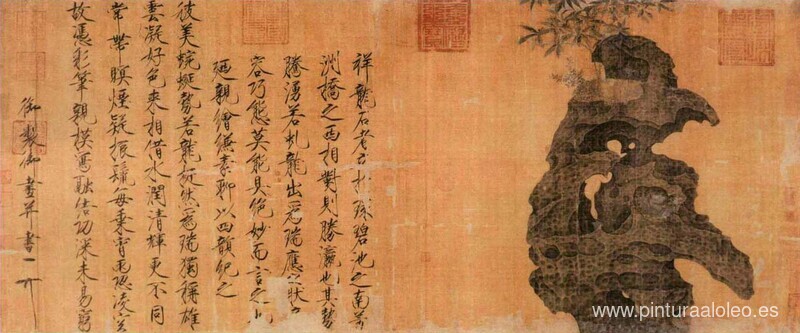 祥龍石者立於環碧池之南芳
洲橋之西相對則勝瀛也其勢
騰湧若虬龍出為瑞應之狀奇
容巧態莫能具絕妙而言之也
廼親繪縑素聊以四韻紀之
彼美蜿蜒勢若龍挺然為瑞獨稱雄
雲凝好色來相借水潤清輝更不同
常帶暝煙疑振鬣每乘宵雨恐凌空
故憑彩筆親模寫融結功深未易窮
御製御畫并書
www.pinturaaloleo.es